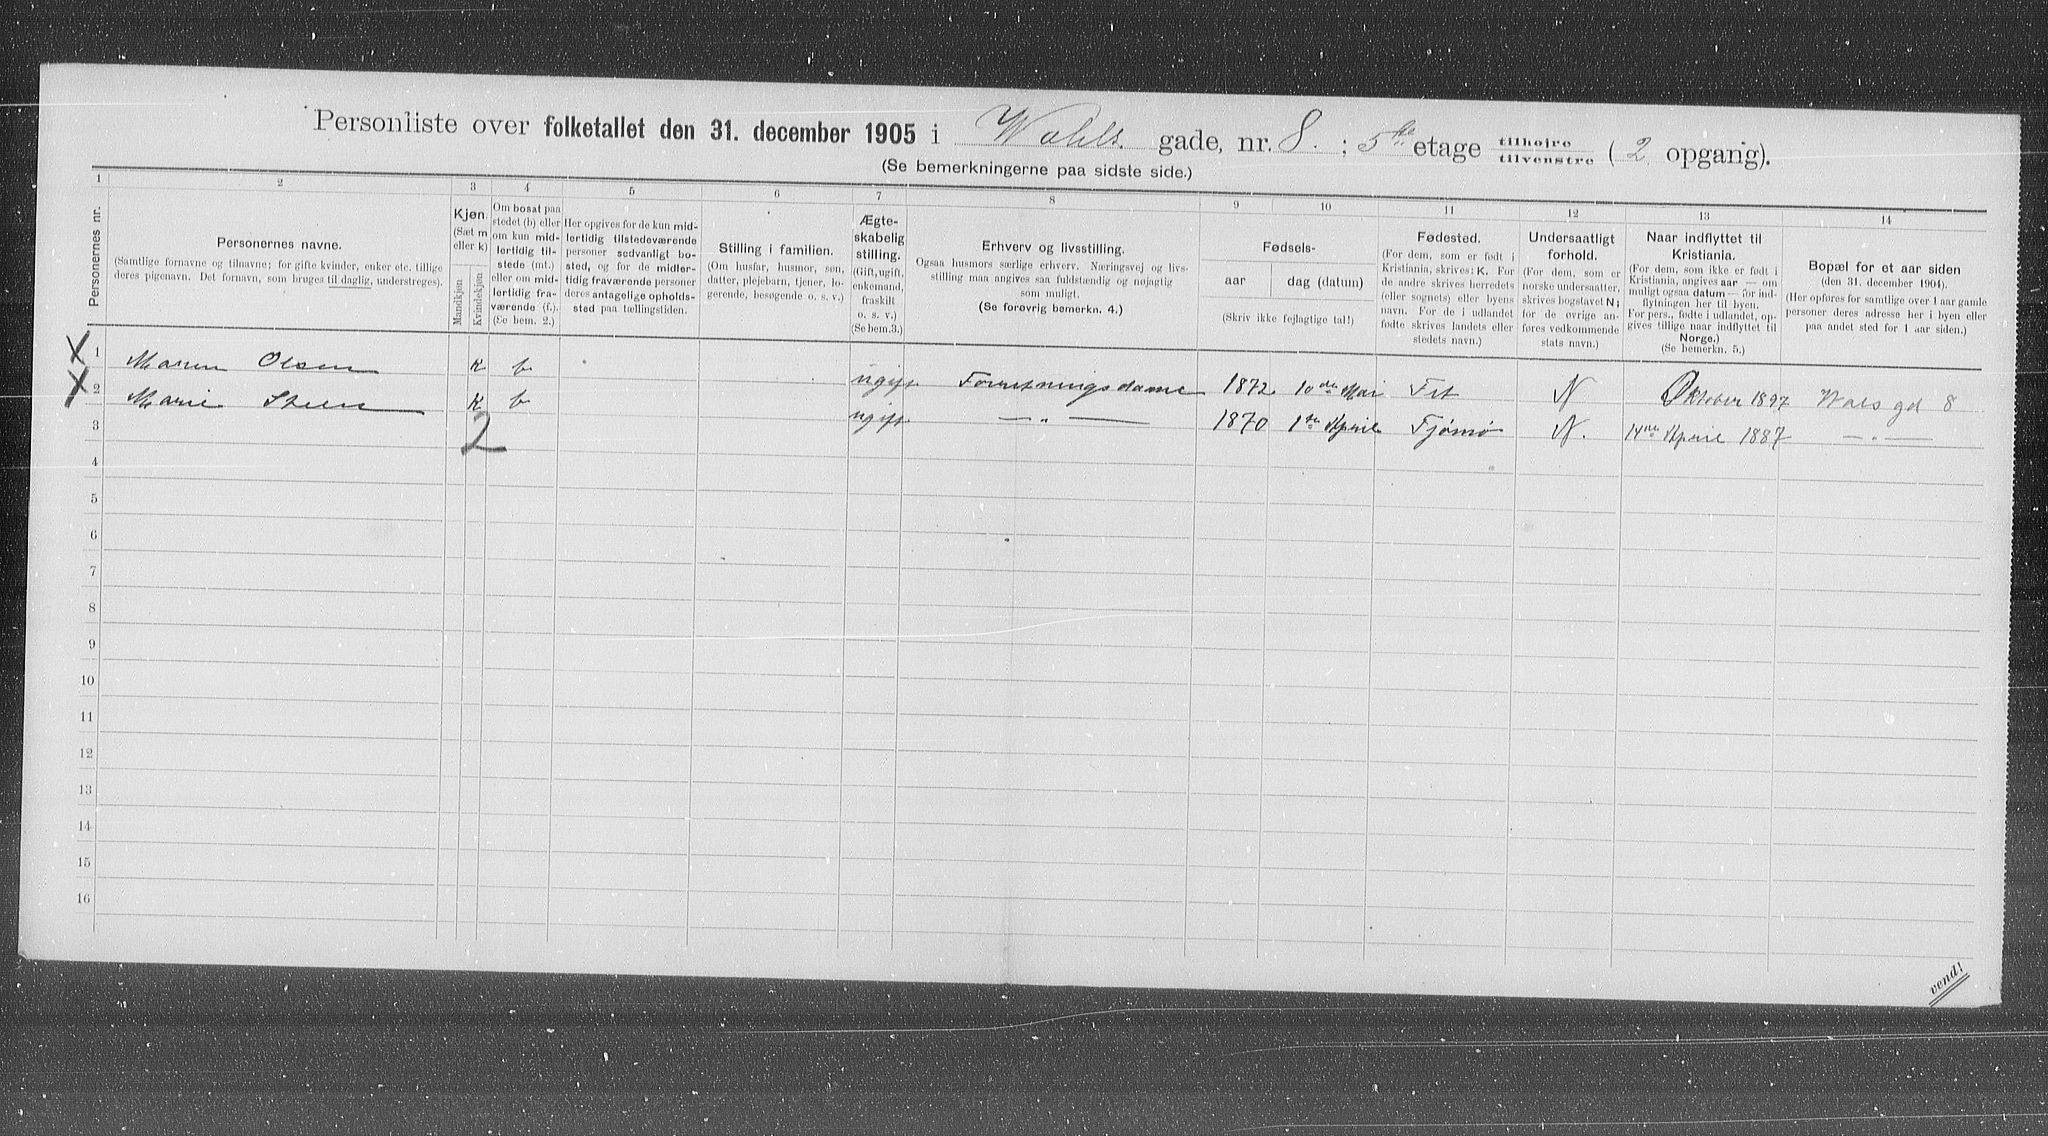 Personliste over folketallet den 31. december 1905 i Wahls gade, nr. 8. ; 5te etage tilhøire tilvenstre ( 2 opgang).
(Se bemerkningerne paa sidste side.)
1 2 3 4 5 6 7 8 9 10 11 12 13 14
Personernes nr.
Personernes navne.
(Samtlige fornavne og tilnavne; for gifte kvinder, enker etc. tillige
deres pigenavn. Det fornavn, som bruges til daglig, understreges).
Kjøn.
(Sæt m
eller k)
Mandkjøn
Kvindekjøn
Om bosat paa
stedet (b) eller
om kun mid-
lertidig til-
stede (mt.)
eller om mid-
lertidig fra-
værende (f.).
(Se bem. 2.)
Her opgives for de kun mid-
lertidig tilstedeværende
personer sedvanligt bo-
sted, og for de midler-
tidig fraværende personer
deres antagelige opholds-
sted paa tællingstiden.
Stilling i familien.
(Om husfar, husmor, søn,
datter, plejebarn, tjener, lo-
gerende, besøgende o. s. v.)
Ægte-
skabelig
stilling.
(Gift, ugift,
enkemand,
fraskilt
o. s. v.)
(Se bem.3.)
Erhverv og livsstilling.
Ogsaa husmors særlige erhverv. Næringsvej og livs-
stilling maa angives saa fuldstændig og nøjagtig
som muligt.
(Se forøvrig bemerkn. 4.)
Fødsels-
aar
dag (datum)
(Skriv ikke fejlagtige tal!)
Fødested.
(For dem, som er født i
Kristiania, skrives: K. For
de andre skrives herredets
(eller sognets) eller byens
navn. For de i udlandet
fødte skrives landets eller
stedets navn.)
Undersaatligt
forhold.
(For dem, som er
norske undersaatter,
skrives bogstavet N;
for de øvrige an-
føres vedkommende
stats navn.)
Naar indflyttet til
Kristiania.
(For dem, som ikke er født i
Kristiania, angives aar — om
muligt ogsaa datum — for ind-
flytningen her til byen.
For pers., fødte i udlandet, op-
gives tillige naar indflyttet til
Norge.)
(Se bemerkn. 5.)
Bopæl for et aar siden
(den 31. december 1904).
(Her opføres for samtlige over 1 aar gamle
personer deres adresse her i byen eller
paa andet sted for 1 aar siden.)
X 1 Maren Olsen K b ugift Forretningsdame 1872 10de Mai Fet N Oktober 1897 Wals gd 8
X 2 Marie Steen K b ugift — „ — 1870 1ste April Tjømø N. 14de April 1887 — „ —
3 2
4
5
6
7
8
9
10
11
12
13
14
15
16
vend!